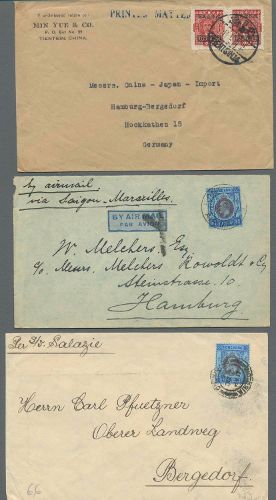 MIN YUE & CO.
P. O. Box No. 99
TIENTSIN, CHINA.
PRINTED MATTER
Messrs. China - Japan - Import
Hamburg-Bergedorf
Hockkathen 18
Germany
by airmail
via Saigon, Marseilles
BY AIR MAIL
PAR AVION
W. Melchers, Esq
c/o Messrs. Melchers Rowoldt & Co
Steinstrasse, 10
Hamburg
Per S/S. Salazie
Herrn Carl Pfuetzner
Oberer Landweg
Bergedorf
66